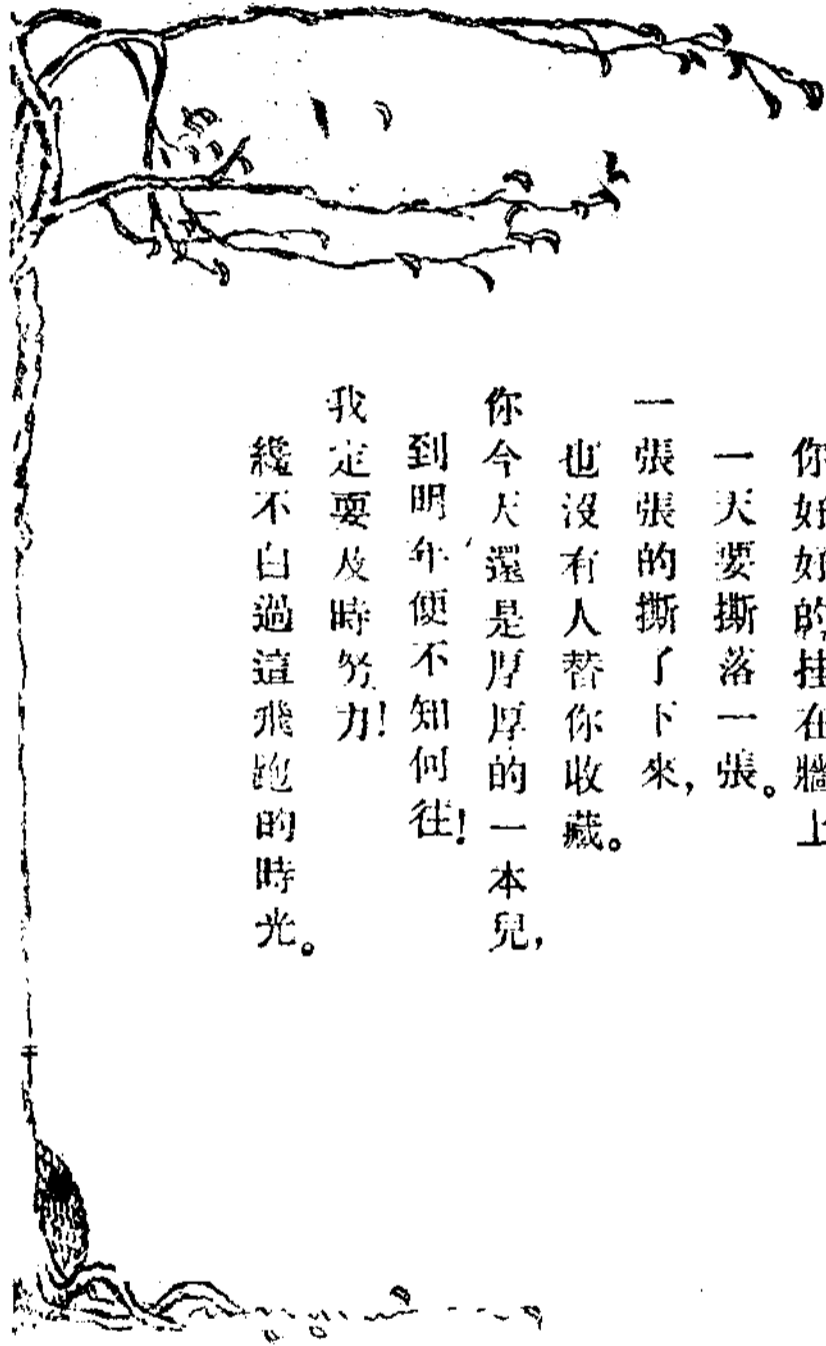 你好好的挂在牆上
一天要撕落一張。
一張張的撕了下來,
也沒有人替你收藏。
你今天還是厚厚的一本兒,
到明年便不知何往!
我定要及時努力!
纔不白過這飛跑的時光。